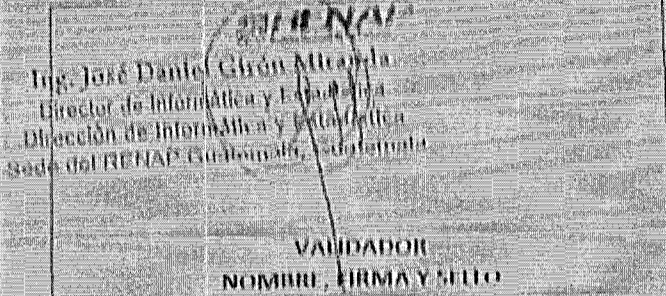 RENAP
Ing. José Daniel Girón Miranda
Director de Informática y Estadística
Dirección de Informática y Estadística
Sede del RENAP Guatemala, Guatemala
VALIDADOR
NOMBRE, FIRMA Y SELLO